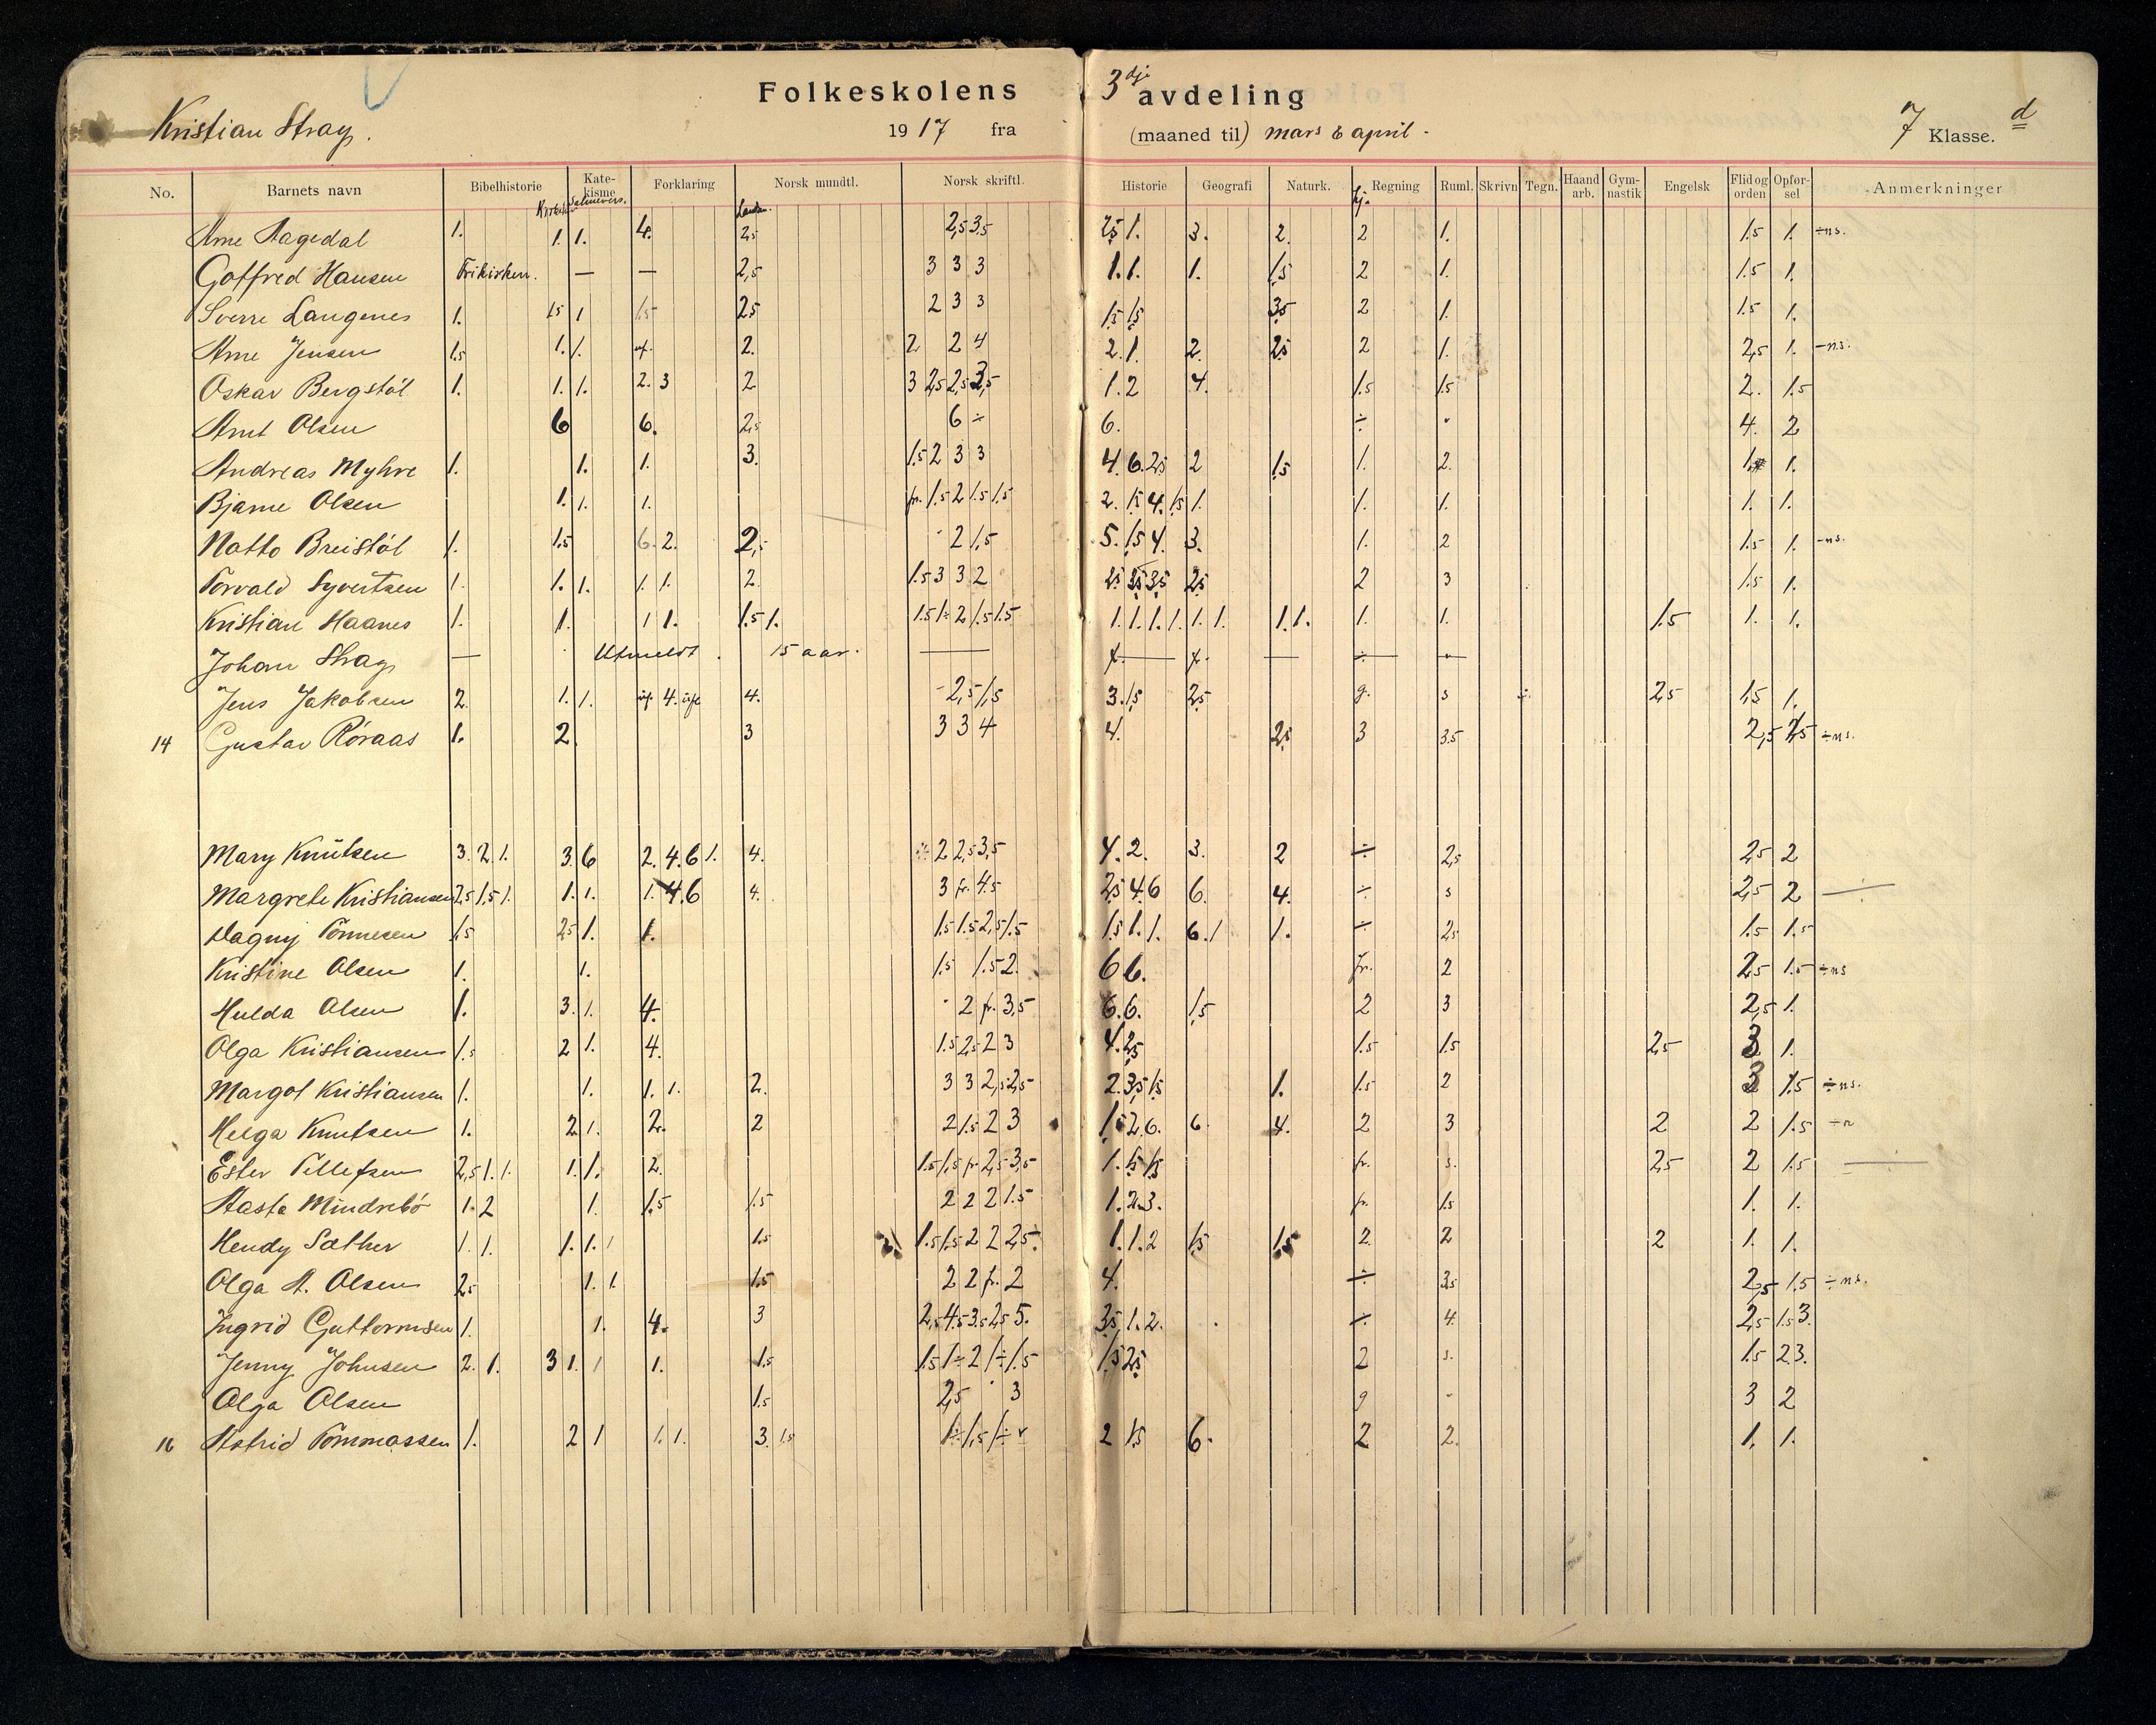 Folkeskolens 3dje avdeling
Kristian Stray. 1917 fra (maaned til) mars & april - 7 Klasse. d
No. Barnets navn Bibelhistorie Kate-kisme Forklaring Norsk mundtl. Norsk skriftl. Historie Geografi Naturk. Regning Ruml. Skrivn Tegn. Haand arb. Gym-nastik Engelsk Flid og orden Opfør-sel Anmerkninger
Salmevers.
Arne Aagedal 1. 1. 1. 4. 2,5 2,5 3,5 2,5 1. 3. 2. 2 1. 1.5 1. ÷ns.
Gotfred Hansen Frikirken. — — 2,5 3 3 3 1. 1. 1. 1,5 2 1. 1.5 1.
Sverre Langenes 1. 1.5 1 1.5 2,5 2 3 3 1,5 1,5 3,5 2 1. 1.5 1.
Arne Jensen 1.5 1. 1. 2. 2 2 4 2. 1. 2. 2,5 2 1. 2,5 1. -ns.
Oskar Bergstöl 1. 1. 1. 2. 3 2 3 2,5 2,5 3,5 1. 2 4. 1.5 1.5 2. 1.5
Arnt Olsen 6 6. 2,5 6 ÷ 6. ÷ " 4. 2
Andreas Myhre 1. 1. 1. 3. 1.5 2 3 3 4. 6. 2,5 2 1,5 1. 2. 1. 1.
Bjarne Olsen 1. 1. 1. fr. 1.5 2 1.5 1.5 2. 1,5 4. 1,5 1. 1. 1. 1. 1.
Natto Breistöl 1. 1.5 6. 2. 2,5 - 2 1,5 5. 1,5 4. 3. 1. 2 1.5 1. -ns.
Torvald Syvertsen 1. 1. 1. 1. 1. 2. 1.5 3 3 2 2,5 3,5 3,5 2,5 2 3 1.5 1.
Kristian Haanes 1. 1. 1 1. 1.5 1. 1.5 1÷ 2 1.5 1.5 1. 1. 1. 1. 1. 1. 1. 1. 1. 1. 1.5 1. 1.
Johan Stray — Utmeldt. 15 aar. —
Jens Jakobsen 2. 1. 1. 4. 4. - 2,5 1,5 3. 1,5 2,5 g. s ÷ 2,5 1,5 1.
14 Gustav Röraas 1. 2. 3 3 3 4 4. 2,5 3 3.5 2,5 1,5 ÷ns.
Mary Knutsen 3. 2. 1. 3. 6 2. 4. 6 1. 4. ÷ 2 2,5 3,5 4. 2. 3. 2 ÷ 2,5 2,5 2
Margrete Kristiansen 2,5 1,5 1. 1. 1. 1. 4. 6 4. 3 fr. 4.5 2,5 4. 6 6. 4. ÷ s 2,5 2 —
Dagny Tönnesen 1,5 2,5 1. 1. 1.5 1.5 2,5 1.5 1,5 1. 1. 6. 1 1. ÷ 2,5 1.5 1.5
Kristine Olsen 1. 1. 1.5 1.5 2. 6 6. fr. 2 2,5 1.5 ÷ns
Hulda Olsen 1. 3. 1. 4. - 2 fr. 3,5 6. 6. 1,5 2 3 2,5 1.
Olga Kristiansen 1.5 2 1. 4. 1.5 2,5 2 3 4. 2,5 1.5 1.5 2,5 3 1.
Margot Kristiansen 1. 1. 1. 1. 2. 3 3 2,5 2,5 2. 3,5 1,5 1. 1.5 2 3 1.5 ÷ns.
Helga Knutsen 1. 2 1. 2. 2 2 1.5 2 3 1,5 2. 6. 6. 4. 2 3 2 2 1.5 ÷n
Ester Tellefsen 2,5 1. 1. 1. 1. 2. 1.5 1.5 fr 2,5 3,5 1. 1,5 1,5 fr. s. 2,5 2 1.5 —
Aasta Mindrebö 1. 2 1. 1.5 1.5 2 2 2 1.5 1. 2. 3. fr. 1.5 1. 1.
Hendy Sæther 1. 1. 1. 1. 1 1.5 1.5 1.5 2 2 2,5÷ 1. 1. 2 1,5 1,5 2. 2 2 1. 1.
Olga A. Olsen 2,5 1. 1. 1.5 2 2 fr. 2 4. ÷ 3,5 2,5 1.5 ÷ns.
Ingrid Guttormsen 1. 1. 4. 3 2,5 4.5 3.5 2,5 5. 3,5 1. 2. ÷ 4. 2,5 1.5 3.
Jenny Johnsen 2. 1. 3 1. 1 1. 1.5 1.5 1÷ 2 1÷ 1.5 1,5 2,5 2 s. 1.5 2 3.
Olga Olsen 1.5 2,5 3 g - 3 2
16 Astrid Tommassen 1. 2 1 1. 1. 3. 1.5 1÷ 1,5 1÷ 2 1,5 6. 2 2. 1. 1.